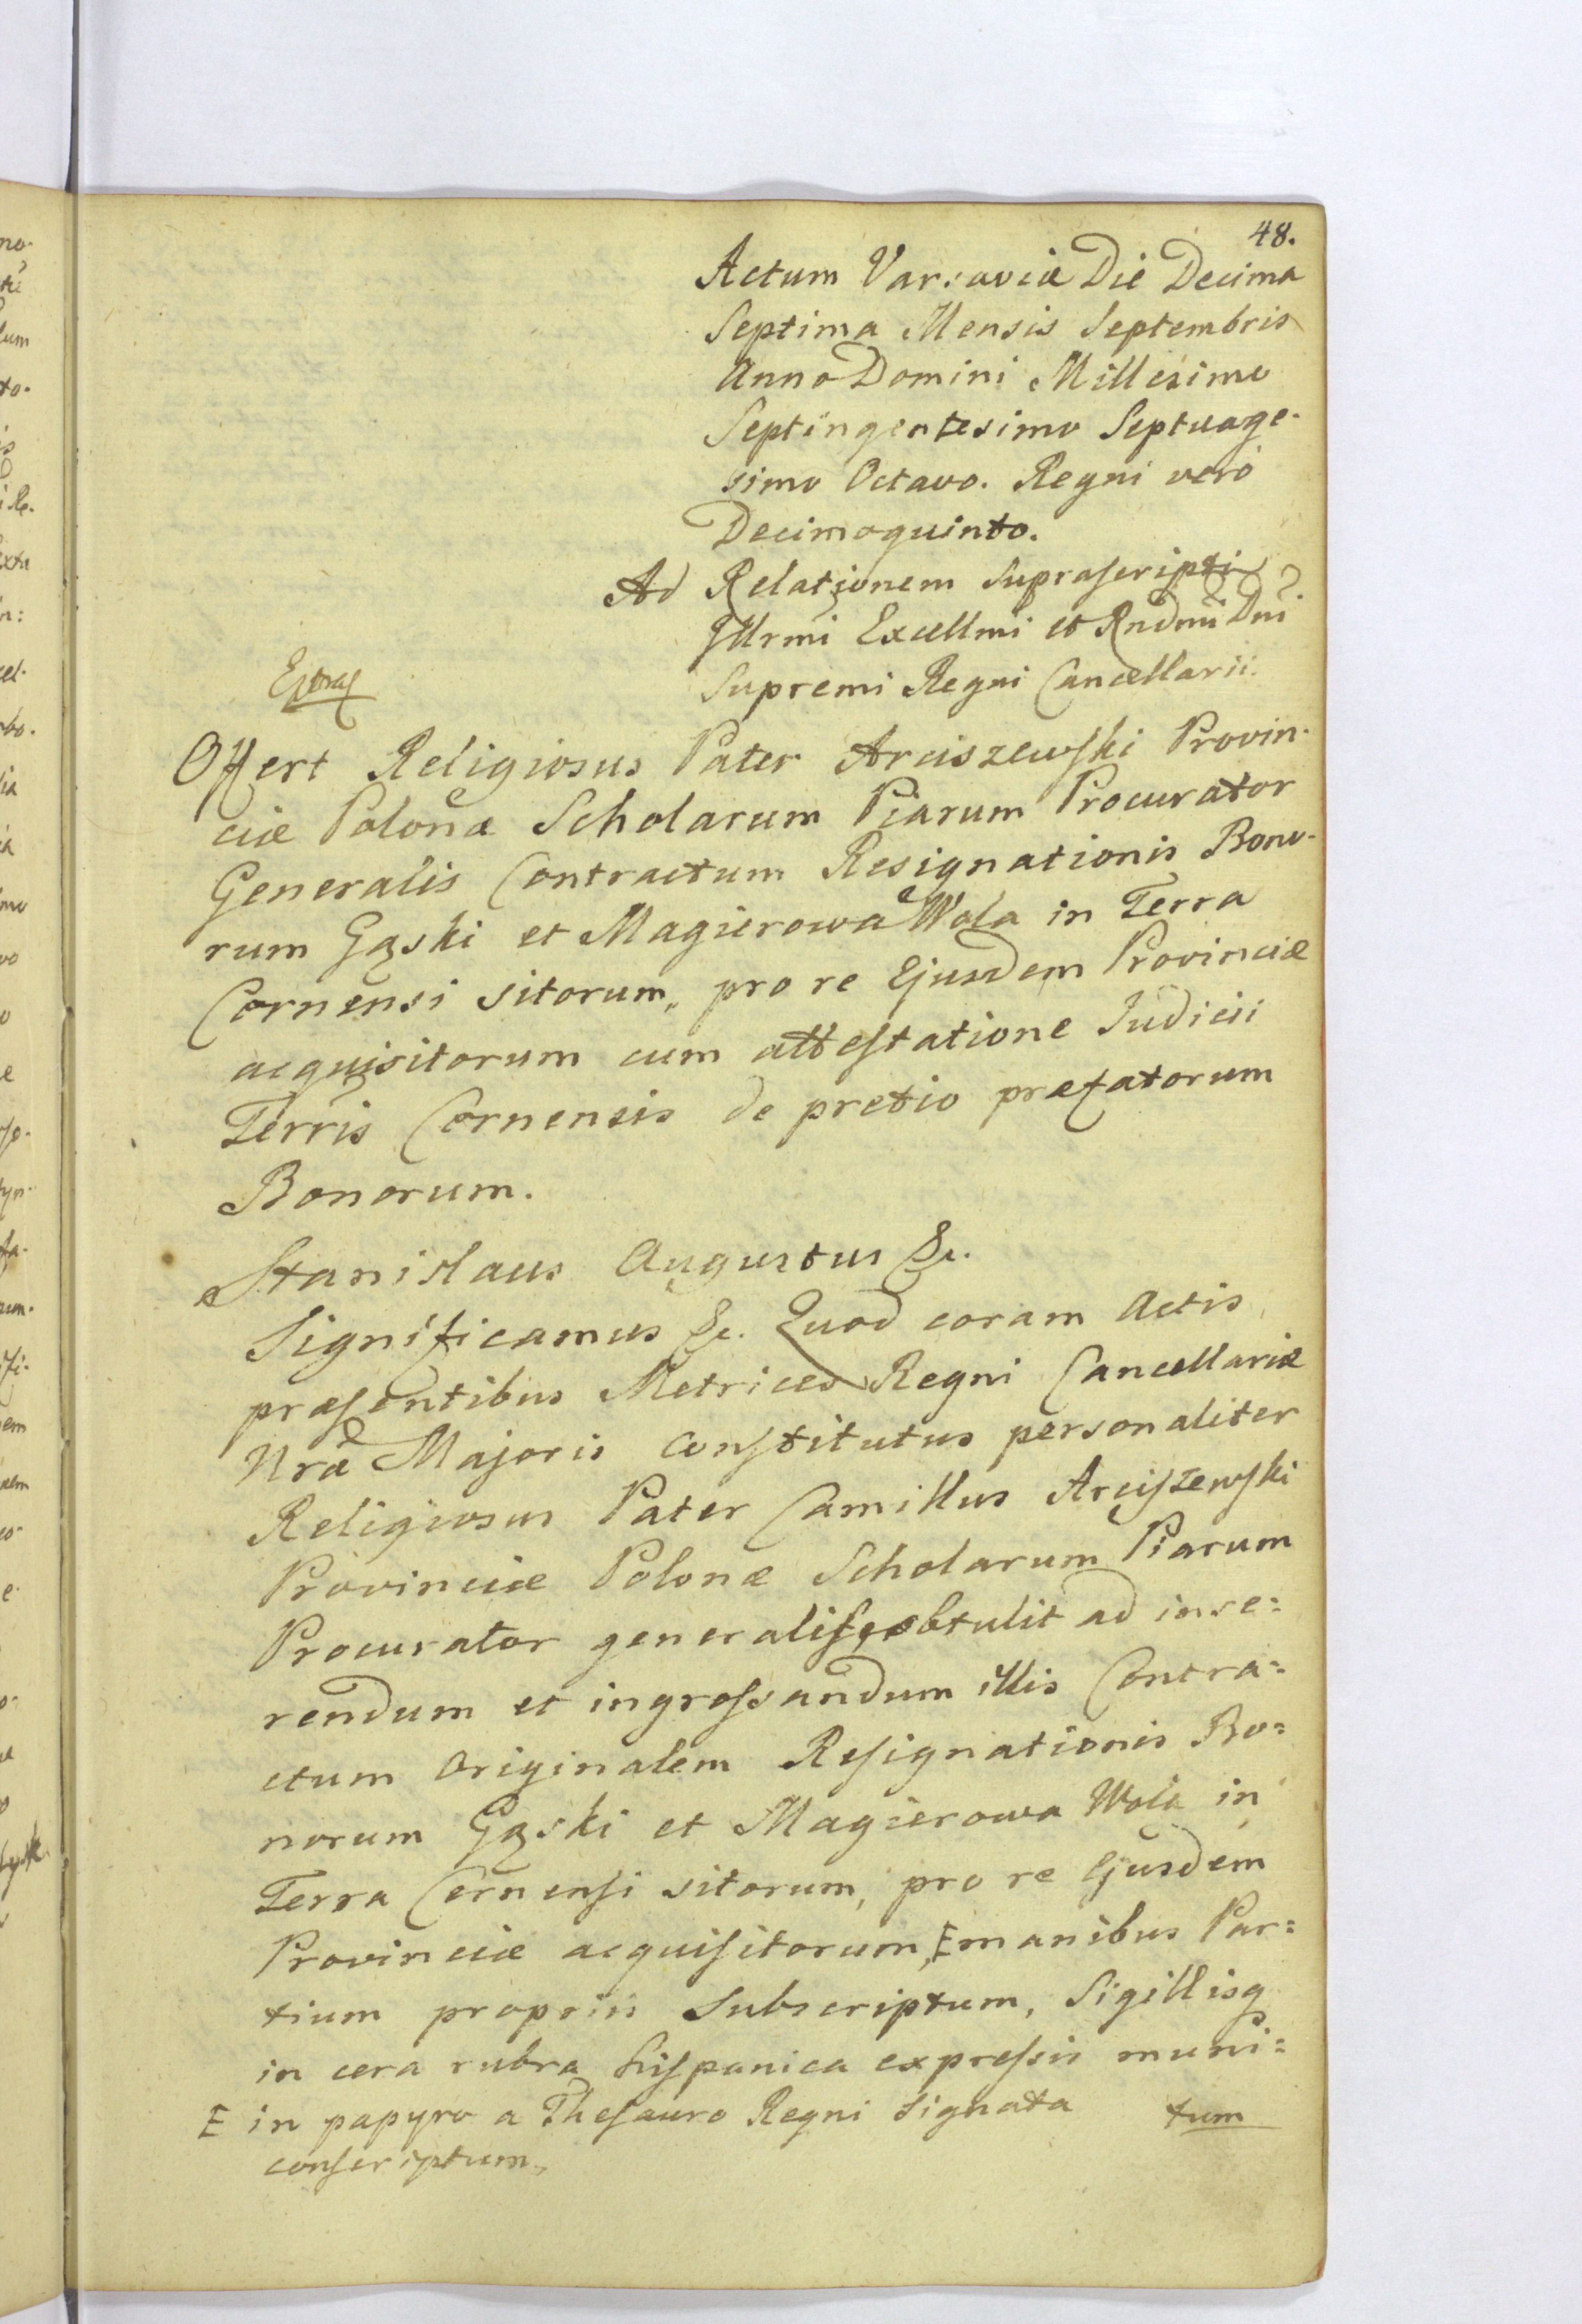 48.
Actum Varsaviæ Die Decima
Septima Mensis Septembris
Anno Domini Millesimo
Septingentesimo Septuage-
simo Octavo. Regni verò
Decimoquinto.
Ad Relationem Suprascripti
Illrmi Excellmi et Rndmi Dni
Supremi Regni Cancellarii.
Offert Religiosus Pater Arciszewski Provin-
ciæ Polonæ Scholarum Piarum Procurator
Generalis Contractum Resignationis Bono-
rum Gąski et Magierowa Wola in Terra
Cornensi sitorum, pro re Ejusdem Provinciæ
acquisitorum cum attestatione Judicii
Terris Cornensis de pretio præfatorum
Bonorum.
Stanislaus Augustus &c.
Significamus &c. Quod coram Actis
præsentibus Metrices Regni Cancellariæ
Nræ Majoris constitutus personaliter
Religiosus Pater Camillus Arciszewski
Provinciæ Polonæ Scholarum Piarum
Procurator generalis, obtulit ad inse=
rendum et ingrossandum illis Contra=
ctum Originalem Resignationis Bo=
norum Gąski et Magierowa Wola in
Terra Cernensi sitorum, pro re Ejusdem
Provinciæ acquisitorum, E manibus Par=
tium propriis Subscriptum, Sigillisq
in cera rubra hispanica expressis muni=
tum
E in papyro a Thesauro Regni Signata
conscriptum,